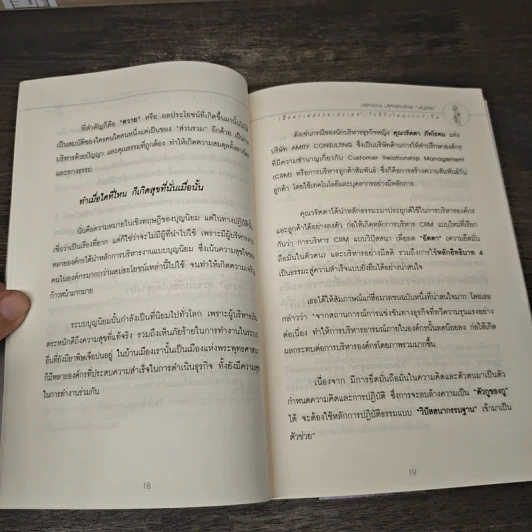 ที่สำคัญก็คือ "ควาย" หรือ ผลประโยชน์ที่เกิดขึ้นมานั้นไม่ได้
เป็นสมบัติของใครคนใดคนหนึ่งแต่เป็นของ "ส่วนรวม" อีกด้วย เป็นการ
บริหารด้วยปัญญา และคุณธรรมที่ถูกต้อง ทำให้เกิดความสมดุลทั้งทางโลก
และทางธรรม
ทำเมื่อใดที่ไหน ก็เกิดสุขที่นั่นเมื่อนั้น
นั่นคือความหมายในเชิงทฤษฎีของบุญนิยม แต่ในทางปฏิบัตินั้น
เชื่อว่าเป็นเรื่องที่ยาก แต่ก็ใช่ว่าจะไม่มีผู้ที่นำไปใช้ เพราะมีผู้บริหารงาน
หลายองค์กรได้นำหลักการบริหารงานแบบบุญนิยม ซึ่งเน้นความสุขของ
คนในองค์กรมากกว่าผลประโยชน์เหล่านี้ไปใช้ จนทำให้เกิดความเจริญ
ก้าวหน้ามากมาย
ระบบบุญนิยมนั้นกำลังเป็นที่นิยมไปทั่วโลก เพราะผู้บริหารเริ่ม
ตระหนักถึงความสุขที่แท้จริง รวมถึงเห็นภัยร้ายในการทำงานในระบบ
อื่นที่ยังมียาพิษเจือปนอยู่ ในบ้านเมืองเรานั้นเป็นเมืองแห่งพระพุทธศาสนา
ก็มีหลายองค์กรที่ประสบความสำเร็จในการดำเนินธุรกิจ ทั้งยังมีความสุข
ในการทำงานร่วมกัน
18
บริหารงาน บริหารคนด้วย "บุญนิยม"
ดังเช่นกรณีของนักบริหารธุรกิจหญิง คุณวรัตดา ภัทโรดม แห่ง
บริษัท AMITY CONSULTING ซึ่งเป็นบริษัทด้านการให้คำปรึกษาองค์กร
ที่มีความชำนาญเกี่ยวกับ Customer Relationship Management
(CRM) หรือการบริหารลูกค้าสัมพันธ์ ซึ่งก็คือการสร้างความสัมพันธ์กับ
ลูกค้า โดยใช้เทคโนโลยีและบุคลากรอย่างมีหลักการ
คุณวรัตดาได้นำหลักธรรมมาประยุกต์ใช้ในการบริหารองค์กร
และลูกค้าได้อย่างลงตัว ก่อให้เกิดหลักการบริหาร CRM แบบใหม่ที่เรียก
กันว่า การบริหาร CRM แบบวิปัสสนา เพื่อลด "อัตตา" (ความยึดมั่น
ถือมั่นในตัวตน) และบริหารอย่างมีสติ รวมถึงการใช้หลักอิทธิบาท 4
เป็นธรรมะสู่ความสำเร็จแบบยั่งยืนได้อย่างน่าสนใจ
เธอได้ให้สัมภาษณ์แก่สื่อมวลชนฉบับหนึ่งที่น่าสนใจมาก โดยเธอ
กล่าวว่า "จากสถานการณ์การแข่งขันทางธุรกิจที่ทวีความรุนแรงอย่าง
ต่อเนื่อง ทำให้การบริหารอารมณ์ภายในองค์กรนั้นลดน้อยลง ก่อให้เกิด
ผลกระทบต่อการบริหารองค์กรโดยภาพรวมมากขึ้น
เนื่องจาก มีการยึดมั่นถือมั่นในความคิดและตัวตนมาเป็นตัว
กำหนดความคิดและการปฏิบัติ ซึ่งการจะลบล้างความเป็น "ตัวกูของกู"
ได้ จะต้องใช้หลักการปฏิบัติธรรมแบบ "วิปัสสนากรรมฐาน" เข้ามาเป็น
ตัวช่วย"
19